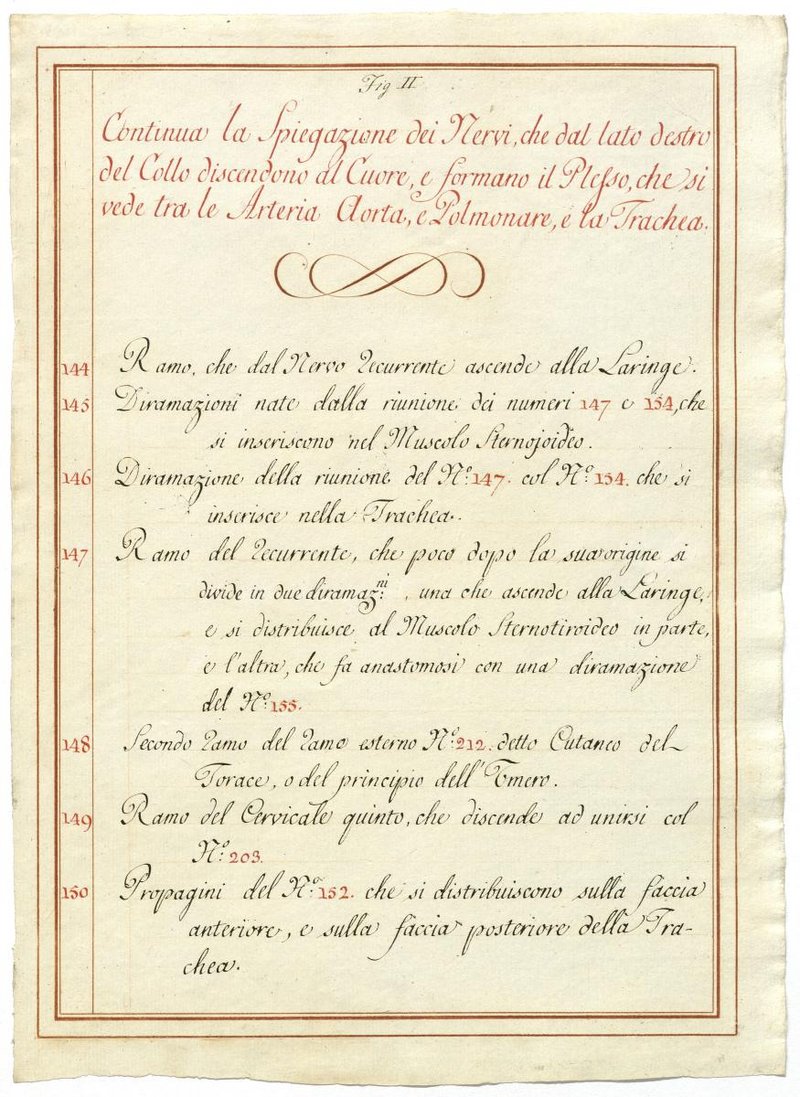 Fig II
Continua la Spiegazione dei Nervi, che dal lato destro
del Collo discendono al Cuore, e formano il Plesso, che si
vede tra le Arteria Aorta, e Polmonare, e la Trachea.
144 Ramo, che dal Nervo Recurrente ascende alla Laringe.
145 Diramazioni nate dalla riunione dei numeri 147 e 154, che
si inseriscono nel Muscolo Sternojoideo.
146 Diramazione della riunione del N.º 147. col N.º 154. che si
inserisce nella Trachea.
147 Ramo del Recurrente, che poco dopo la sua origine si
divide in due diramaz.ni, una che ascende alla Laringe,
e si distribuisce al Muscolo Sternotiroideo in parte,
e l'altra, che fa anastomosi con una diramazione
del N.º 155.
148 Secondo Ramo del Ramo esterno N.º 212. detto Cutaneo del
Torace, o del principio dell'Omero.
149 Ramo del Cervicale quinto, che discende ad unirsi col
N.º 203.
150 Propagini del N.º 152. che si distribuiscono sulla faccia
anteriore, e sulla faccia posteriore della Tra-
chea.